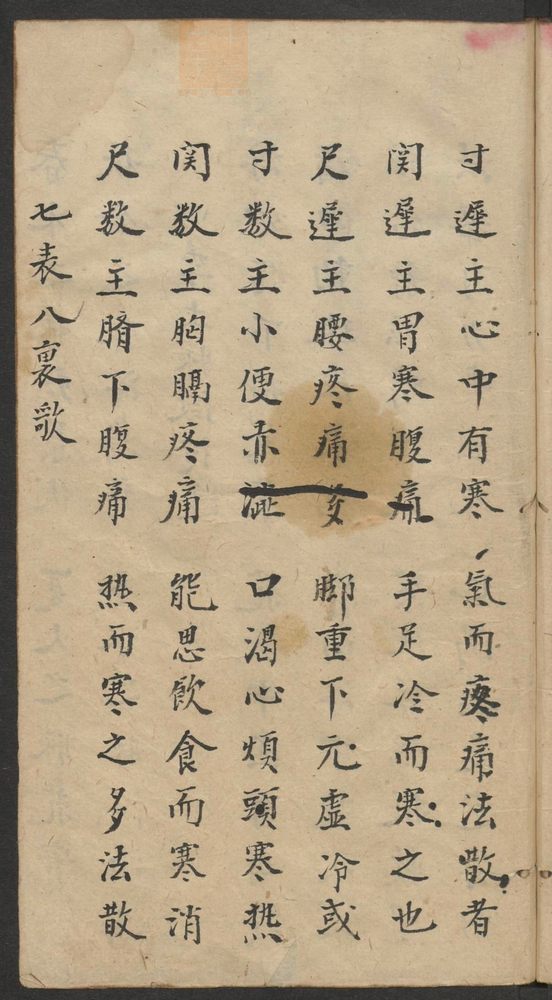 寸遲主心中有寒 氣而疼痛法散者
関遲主胃寒腹痛 手足冷而寒之也
尺遲主腰疼痛多 脚重下元虛冷或
寸数主小便赤澁 口渴心煩頭寒熱
関数主胸膈疼痛 能思飲食而寒消
尺数主臍下腹痛 熱而寒之多法散
七表八裏歌